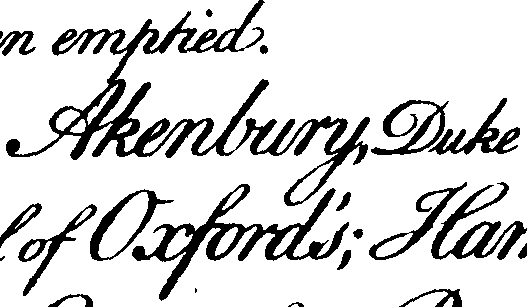 en emptied.
Akenbury, Duke
l of Oxford's; Ham